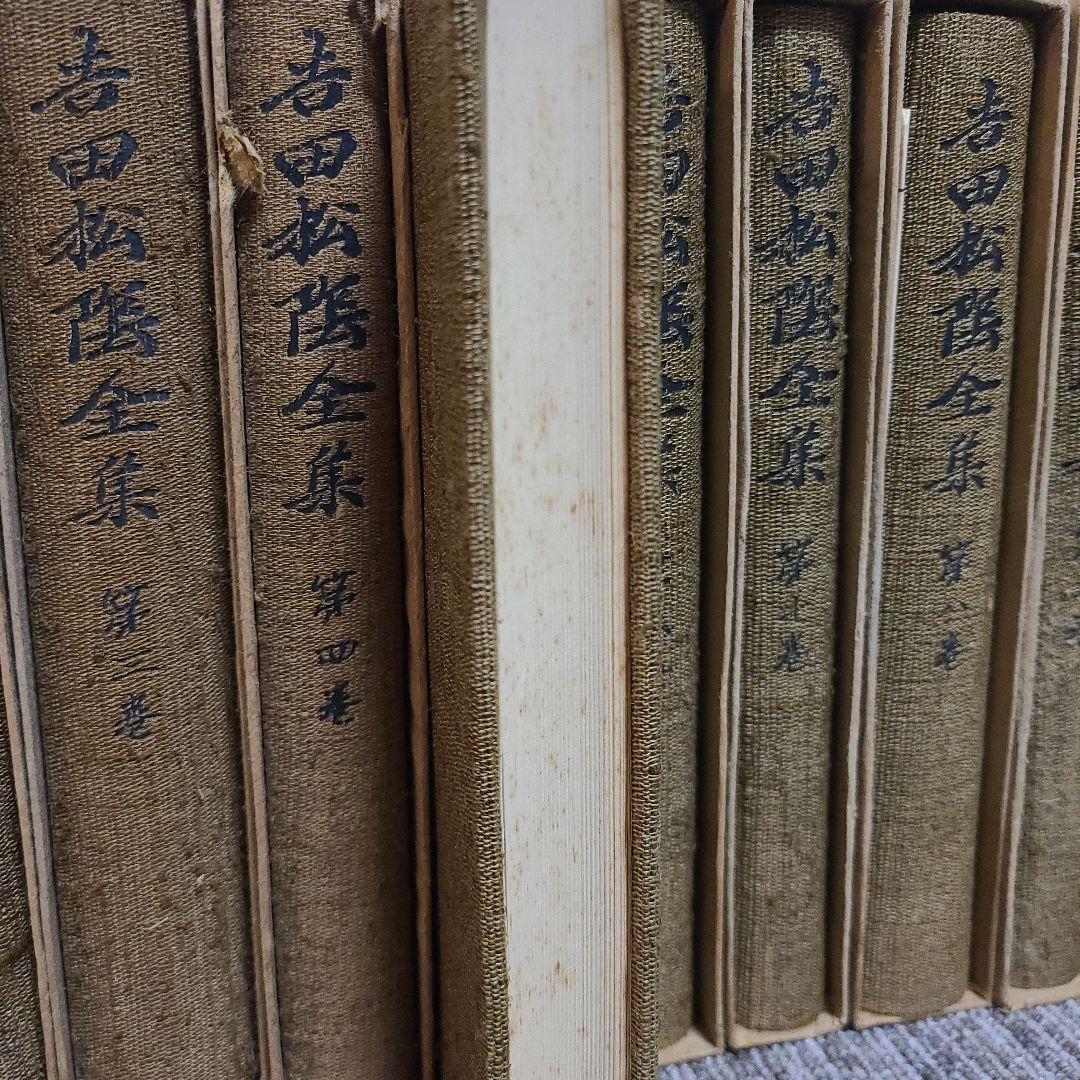 吉田松陰全集 第三巻
吉田松陰全集 第四巻
吉田松陰全集
吉田松陰全集 第七巻
吉田松陰全集 第八巻